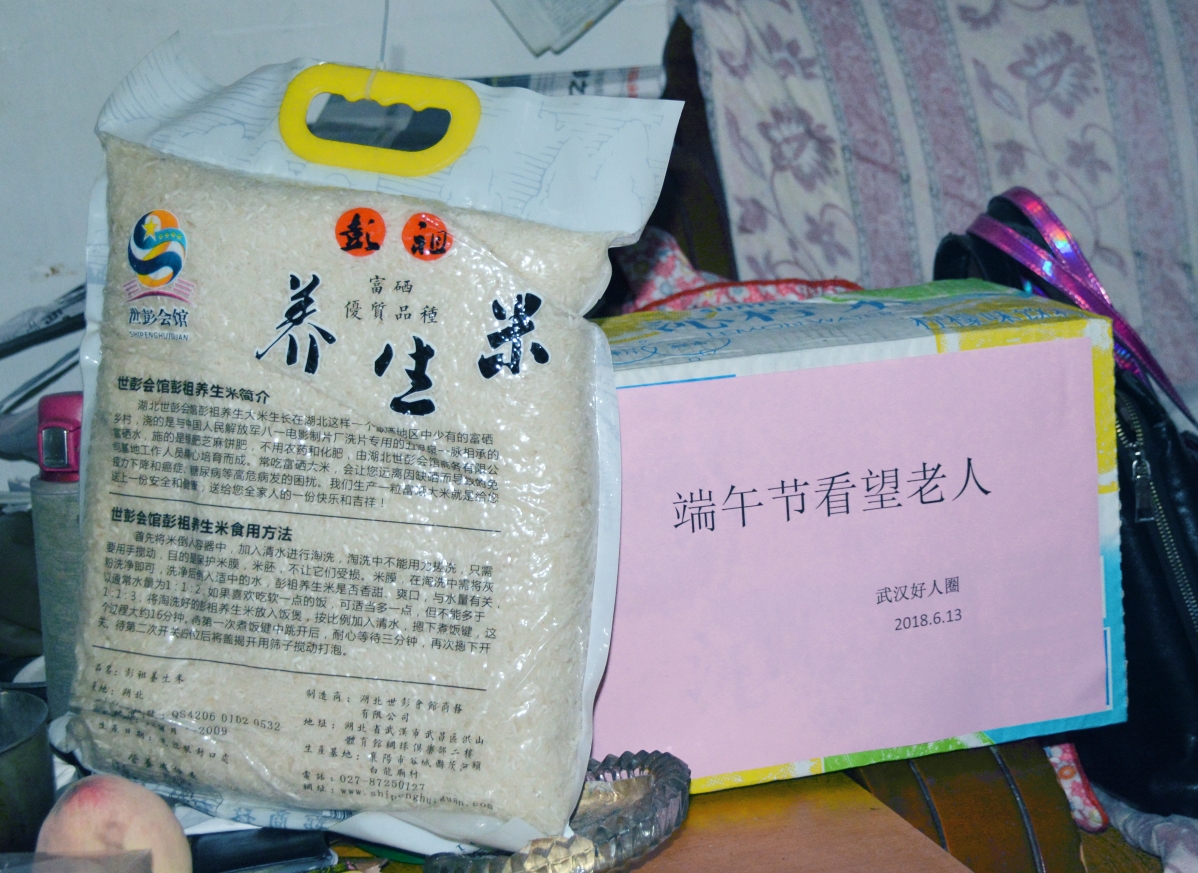 世彭会馆
SHIPENGHUIGUAN
彭祖
富硒
優質品種
养生米
世彭会馆彭祖养生米简介
湖北世彭会馆彭祖养生大米生长在湖北这样一个
地区中少有的富硒
乡村，浇的是与中国人民解放军八一电影制片厂洗片专用的
一脉相承的
富硒水，施的是
芝麻饼肥，不用农药和化肥，由湖北世彭会馆
务有限公
基地工作人员
心培育而成。常吃富硒大米，会让您远离因缺硒而导致的免
疫力下降和癌症、糖尿病等高危病发的困扰。我们生产一粒富硒大米就是给您
送上一份安全和健康，送给您全家人的一份快乐和吉祥！
世彭会馆彭祖养生米食用方法
首先将米倒入容器中，加入清水进行淘洗，淘洗中不能用力搓洗，只需
要用手搅动，目的是保护米膜，米胚，不让它们受损。米膜，在淘洗中需将灰
粉洗净即可，洗净后倒入适中的水，彭祖养生米是否香甜、爽口，与水量有关，
以通常水量为1:1.2，如果喜欢吃软一点的饭，可适当多一点，但不能多于
1:1.3，将淘洗好的彭祖养生米放入饭煲，按比例加入清水，摁下煮饭键，这
个过程大约16分钟，待第一次煮饭键中跳开后，耐心等待三分钟，再次摁下开
关，待第二次开关归位后将盖揭开用筛子搅动打泡。
品名：彭祖养生米
產地：湖北
QS4206 0102 0532
2009
生產日期：
製造商：湖北世彭會館商務
有限公司
地址：湖北省武漢市武昌區洪山
體育館網球俱樂部二樓
生產基地：襄陽市谷城縣茨河鎮
白龍廟村
電話：027-87250127
網址：www.shipenghuiguan.com
端午节看望老人
武汉好人圈
2018.6.13